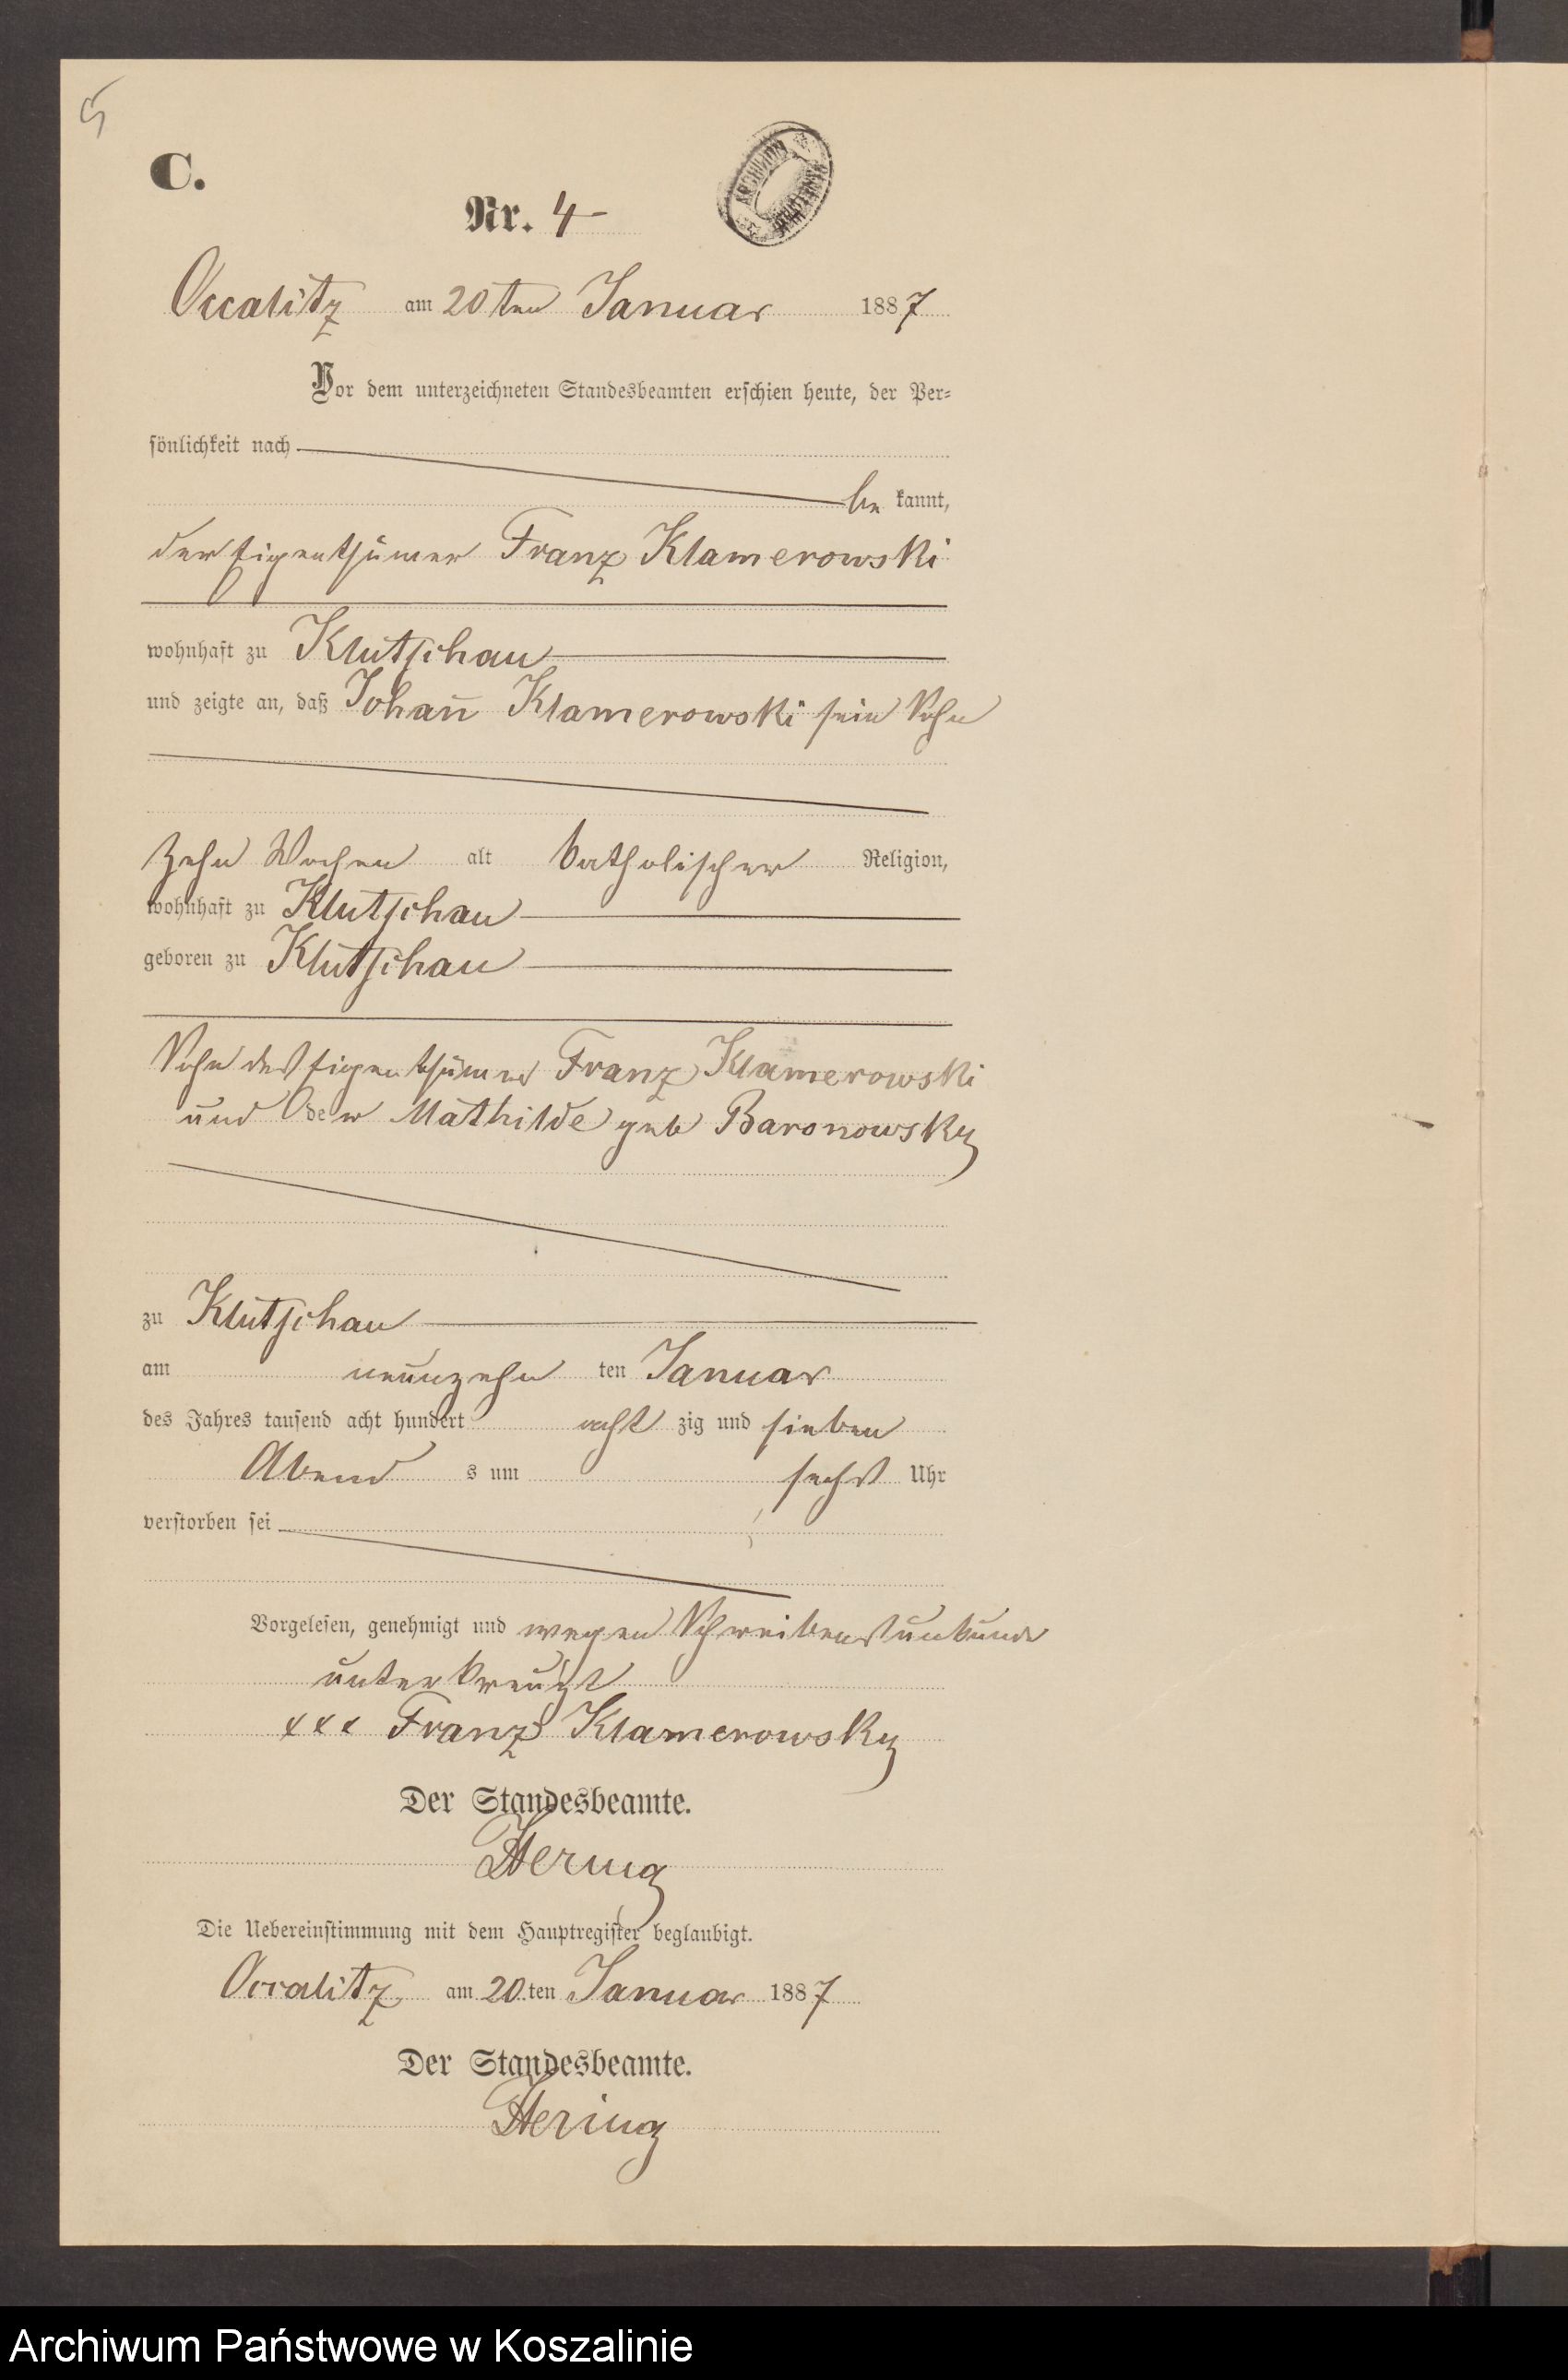 5
C.
ARCHIWUM
Nr. 4
Occalitz am 20ten Januar 1887
Vor dem unterzeichneten Standesbeamten erschien heute, der Per-
sönlichkeit nach
be kannt,
der Eigenthümer Franz Klamerowski
wohnhaft zu Klutschau
und zeigte an, daß Johan̄ Klamerowski sein Sohn
zehn Wochen alt katholischer Religion,
wohnhaft zu Klutschau
geboren zu Klutschau
Sohn des Eigenthümers Franz Klamerowski
und der Mathilde geb Baronowsky
zu Klutschau
am neunzehn ten Januar
des Jahres tausend acht hundert acht zig und sieben
Abend s um sechs Uhr
verstorben sei
Vorgelesen, genehmigt und wegen Schreibensunkunde
unterkreuzt
xxx Franz Klamerowsky
Der Standesbeamte.
Hering
Die Uebereinstimmung mit dem Hauptregister beglaubigt.
Occalitz am 20.ten Januar 1887
Der Standesbeamte.
Hering
Archiwum Państwowe w Koszalinie